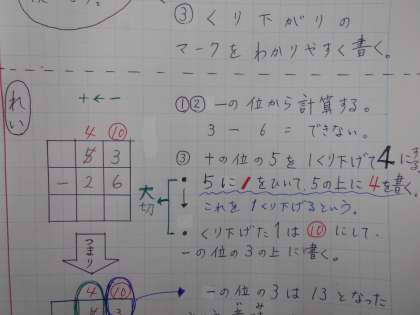 ③ くり下がりの
マークをわかりやすく書く。
れい
＋←一
①② 一の位から計算する。
3 － 6 ＝ できない。
4 ⑩
5 3
－ 2 6
大切
③ 十の位の5を1くり下げて4にする
• 5に1をひいて、5の上に4を書く。
これを1くり下げるという。
• くり下げた1は⑩にして、
一の位の3の上に書く。
つまり
4 ⑩
5 3
一の位の3は13となった